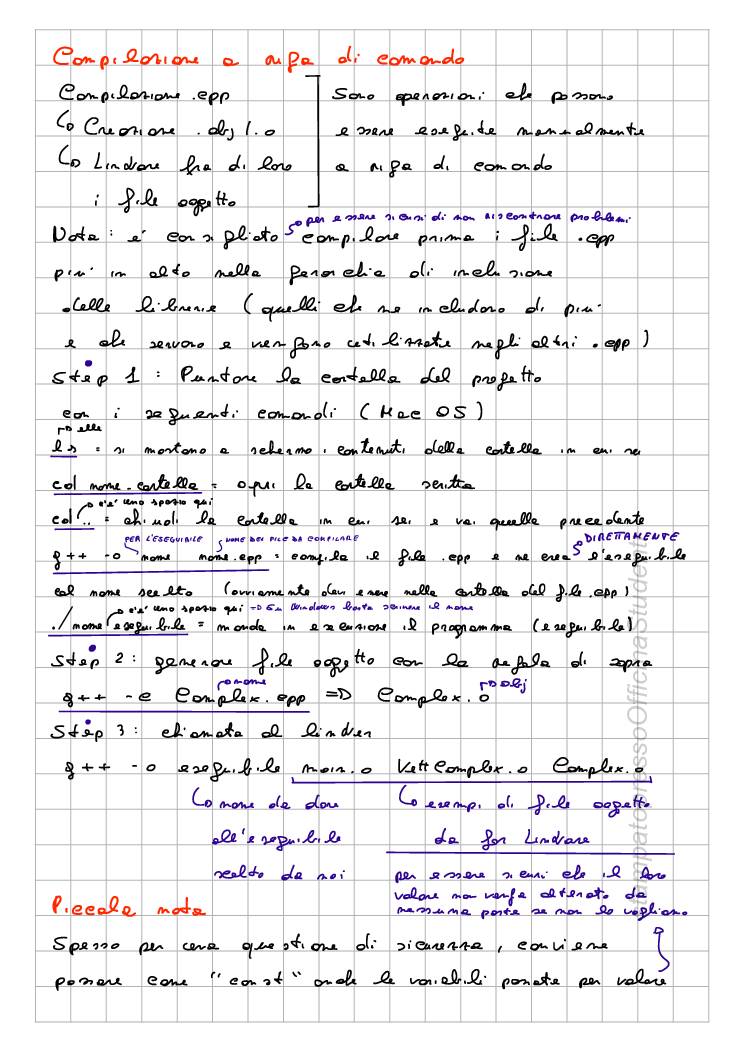 Compilazione a riga di comando
Compilazione .cpp
↳ Creazione .obj / .o
↳ Linkare fra di loro
i file oggetto
Sono operazioni che possono
essere eseguite manualmente
a riga di comando
per essere sicuri di non riscontrare problemi
Nota: e' consigliato compilare prima i file .cpp
piu' in alto nella gerarchia di inclusione
delle librerie (quelli che ne includono di piu'
e che servono e vengono utilizzate negli altri .cpp)
Step 1: Puntare la cartella del progetto
con i seguenti comandi (Mac OS)
elle
ls = si mostrano a schermo i contenuti della cartella in cui sei
cd nome-cartella = apri la cartella scritta
c'e' uno spazio qui
cd .. = chiudi la cartella in cui sei e vai quella precedente
PER L'ESEGUIBILE NOME DEI FILE DA COMPILARE DIRETTAMENTE
g++ -o nome nome.cpp = compila il file .cpp e ne crea l'eseguibile
col nome scelto (ovviamente devi essere nella cartella del file .cpp)
c'e' uno spazio qui => Su Windows basta scrivere il nome
./ nome eseguibile = manda in esecuzione il programma (eseguibile)
Step 2: generare file oggetto con la regola di sopra
nome obj
g++ -c Complex.cpp => Complex.o
Step 3: chiamata al linker
g++ -o eseguibile main.o VettComplex.o Complex.o
↳ nome da dare
all'eseguibile
scelto da noi
↳ esempi di file oggetto
da far Linkare
per essere sicuri che il loro
valore non venga alterato da
nessuna parte se non lo vogliamo
Piccola nota
Spesso per una questione di sicurezza, conviene
passare come "const" anche le variabili passate per valore
stampato presso Officina Studenti